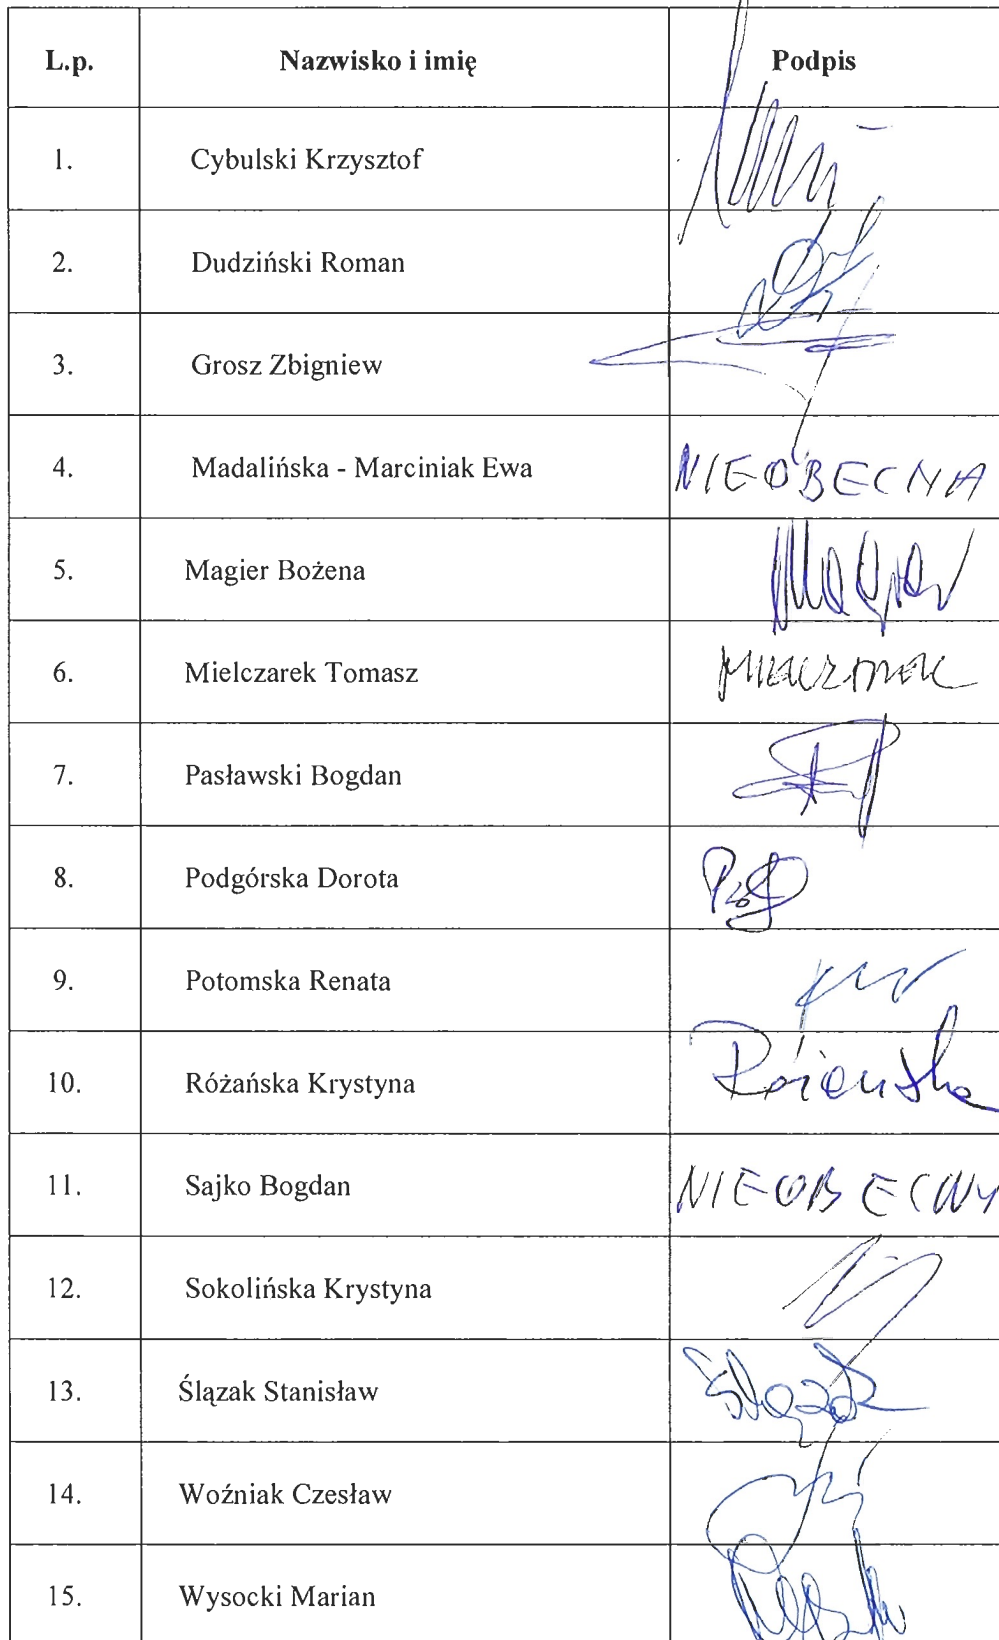 L.p. Nazwisko i imię Podpis
1. Cybulski Krzysztof
2. Dudziński Roman
3. Grosz Zbigniew
4. Madalińska - Marciniak Ewa NIEOBECNA
5. Magier Bożena Magier
6. Mielczarek Tomasz
7. Pasławski Bogdan
8. Podgórska Dorota
9. Potomska Renata
10. Różańska Krystyna Różańska
11. Sajko Bogdan NIEOBECNY
12. Sokolińska Krystyna
13. Ślązak Stanisław Ślązak
14. Woźniak Czesław
15. Wysocki Marian